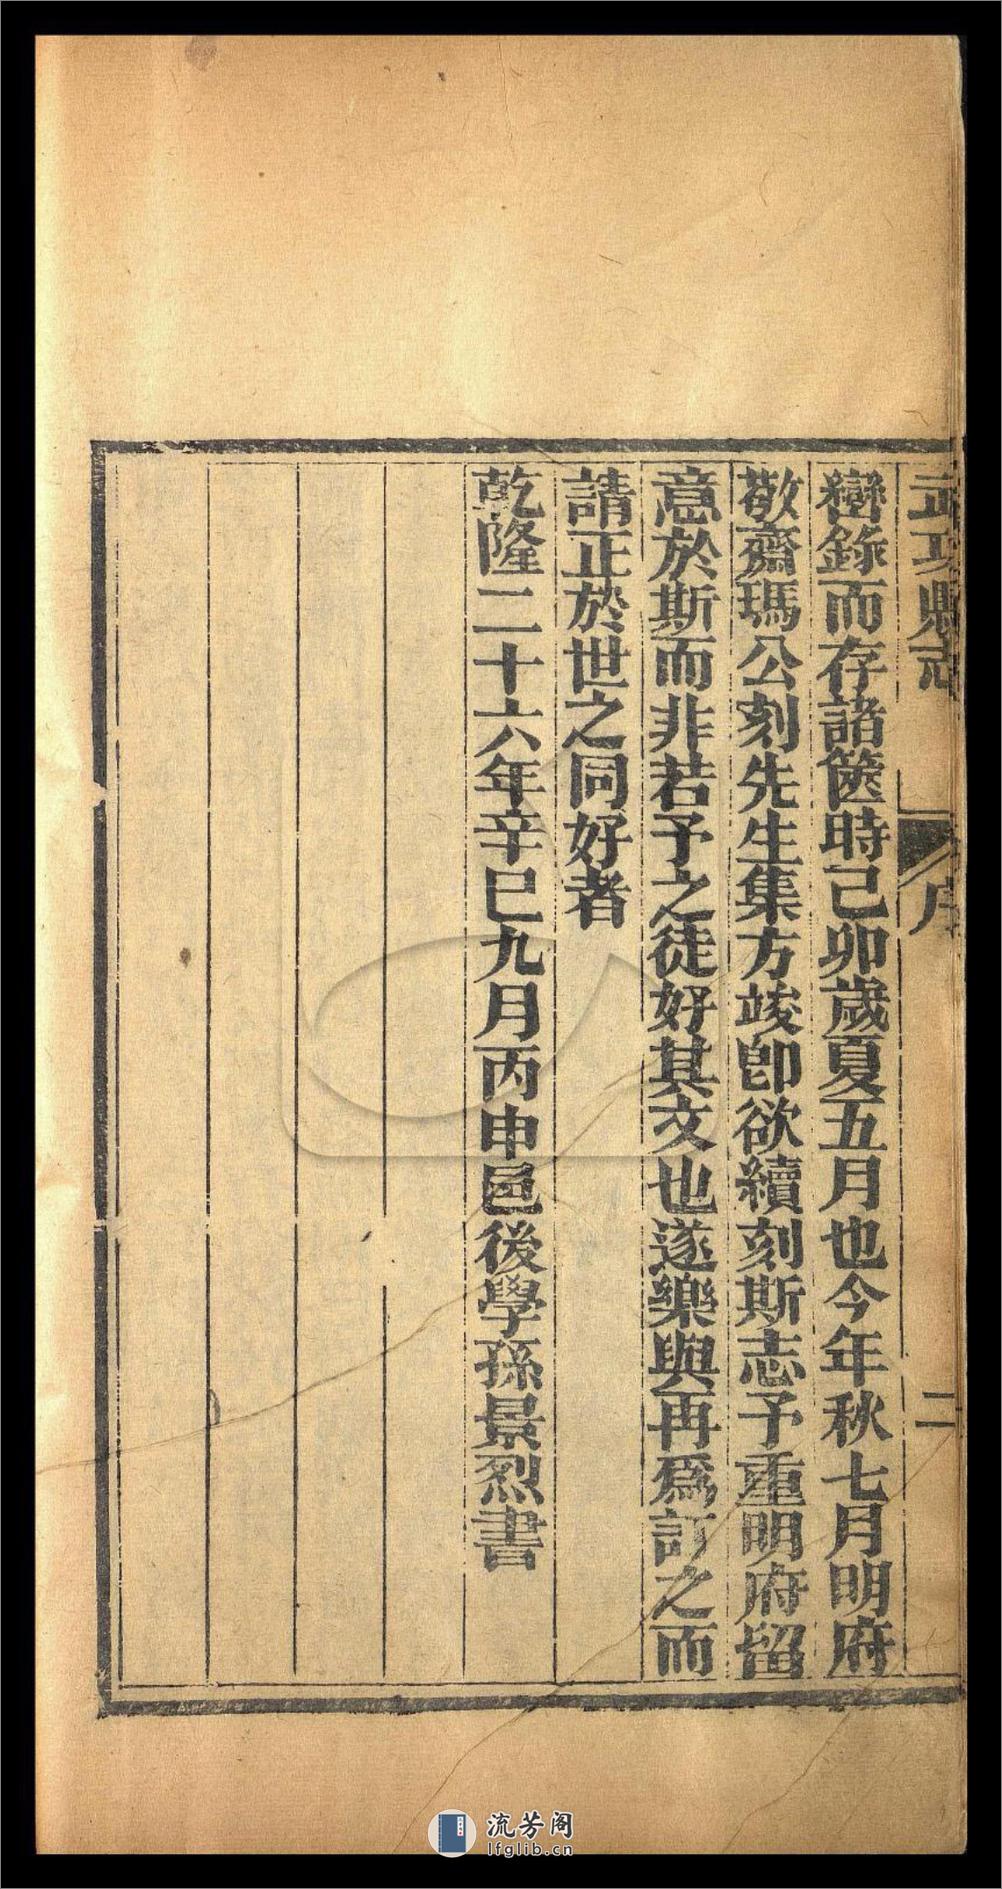 武功縣志
序
二
錄而存諸篋時己卯歲夏五月也今年秋七月明府
敬齋瑪公刻先生集方竣卽欲續刻斯志予重明府留
意於斯而非若予之徒好其文也遂樂與再爲訂之而
請正於世之同好者
乾隆二十六年辛巳九月丙申邑後學孫景烈書
流芳阁
lfglib.cn